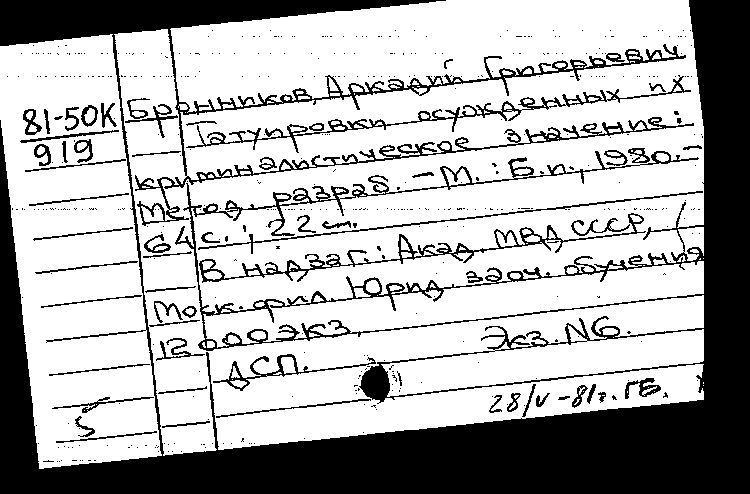 81-50К
919
Бронников, Аркадий Григорьевич
Татуировки осужденных их
криминалистическое значение:
Метод. разраб. – М. : Б.и., 1980. –
64 с. ; 22 см.
В надзаг.: Акад. МВД СССР,
Моск. фил. Юрид. заоч. обучения
12000 экз.
Экз. N6.
ДСП.
28/V-81г. ГБ.
5